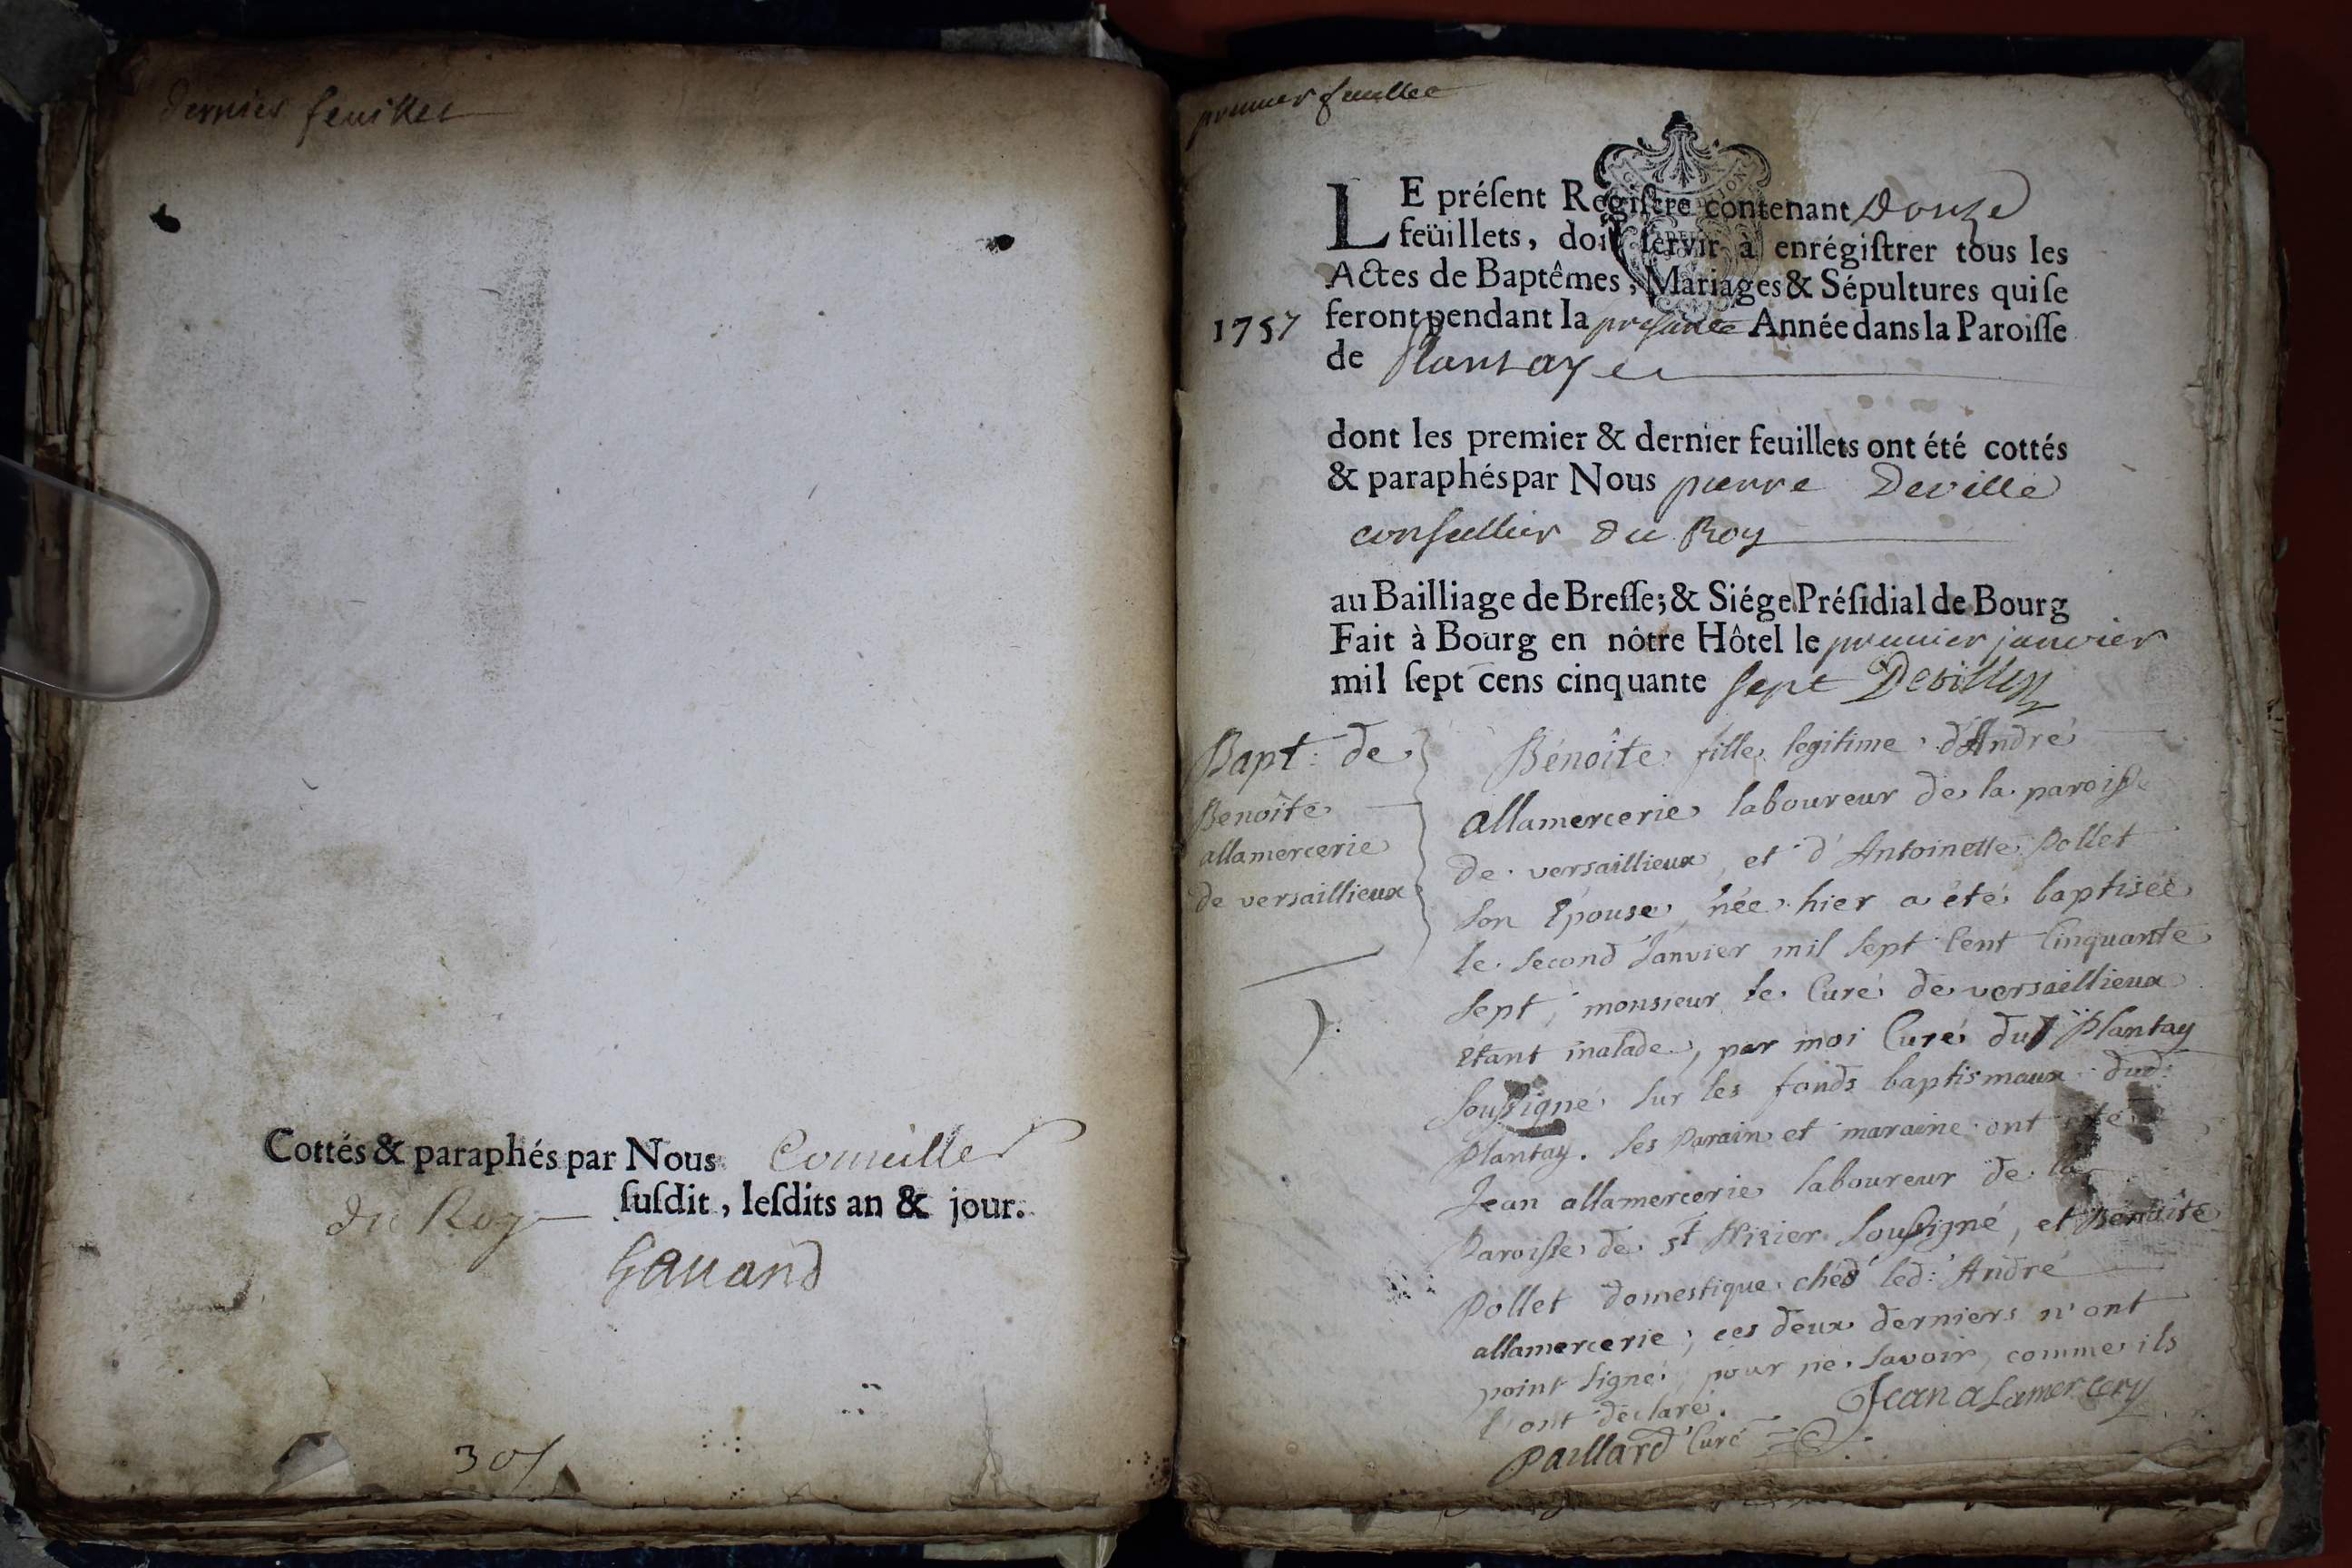 dernier feuillet
Cottés & paraphés par Nous Conseiller
du Roy susdit, lesdits an & jour.
Gauand
307
premier feuillet
LE présent Registre contenant Douze
feüillets, doit servir à enrégistrer tous les
Actes de Baptêmes, Mariages & Sépultures qui se
1757 feront pendant la presente Année dans la Paroisse
de Plantay
dont les premier & dernier feuillets ont été cottés
& paraphés par Nous pierre Deville
conseillier du Roy
au Bailliage de Bresse; & Siége Présidial de Bourg
Fait à Bourg en nôtre Hôtel le premier janvier
mil sept cens cinquante sept Deville
Bapt: de
Benoîte
allamercerie
de versaillieux
Bénoîte fille legitime d'André
allamercerie laboureur de la paroisse
de versaillieux, et d'Antoinette Pollet
son Epouse, née hier a été baptisée
le second Janvier mil sept cent cinquante
sept, monsieur le Curé de versaillieux
étant malade, par moi Curé du Plantay
soussigné sur les fonds baptismaux dud:
Plantay. ses Parain et maraine ont été
Jean allamercerie laboureur de la
Paroisse de st Nizier soussigné, et Benoîte
Pollet domestique chéd led: André
allamercerie; ces deux derniers n'ont
point signé pour ne savoir, comme ils
l'ont déclaré. Jean alamercery
Paillard Curé